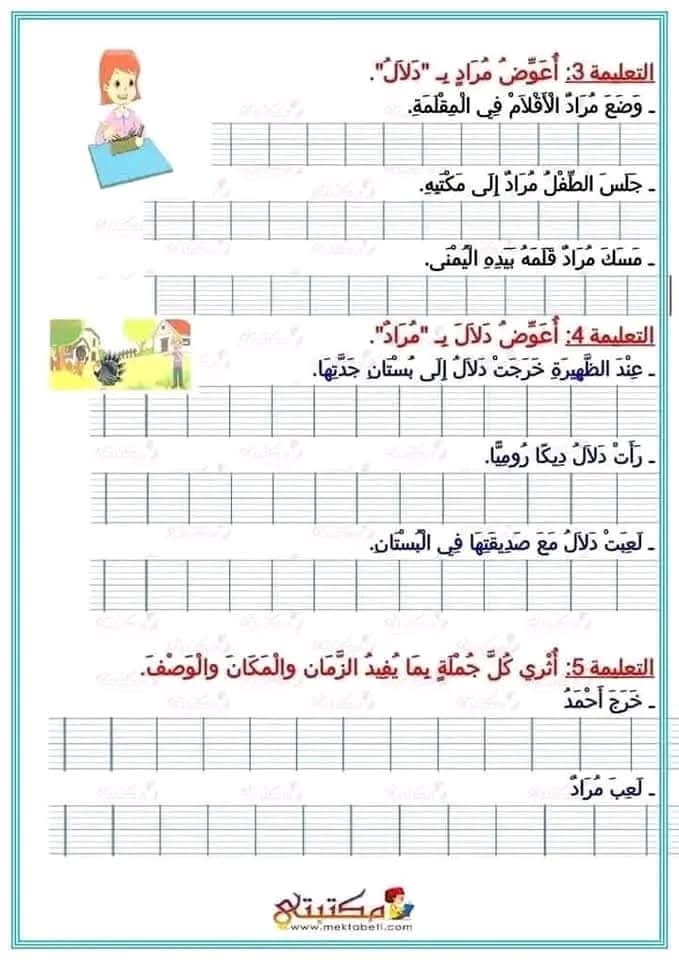 التعليمة 3: أُعَوِّضُ مُرَادٍ بِـ "دَلَالُ".
ـ وَضَعَ مُرَادٌ الْأَقْلَامَ فِي الْمِقْلَمَةِ.
ـ جَلَسَ الطِّفْلُ مُرَادٌ إِلَى مَكْتَبِهِ.
ـ مَسَكَ مُرَادٌ قَلَمَهُ بَيَدِهِ الْيُمْنَى.
التعليمة 4: أُعَوِّضُ دَلَالَ بِـ "مُرَادٌ".
ـ عِنْدَ الظَّهِيرَةِ خَرَجَتْ دَلَالُ إِلَى بُسْتَانِ جَدَّتِهَا.
ـ رَأَتْ دَلَالُ دِيكًا رُومِيًّا.
ـ لَعِبَتْ دَلَالُ مَعَ صَدِيقَتِهَا فِي الْبُسْتَانِ.
التعليمة 5: أُثْرِي كُلَّ جُمْلَةٍ بِمَا يُفِيدُ الزَّمَان والْمَكَانَ والْوَصْفَ.
ـ خَرَجَ أَحْمَدُ
ـ لَعِبَ مُرَادٌ
مكتبتي
www.mektabeti.com